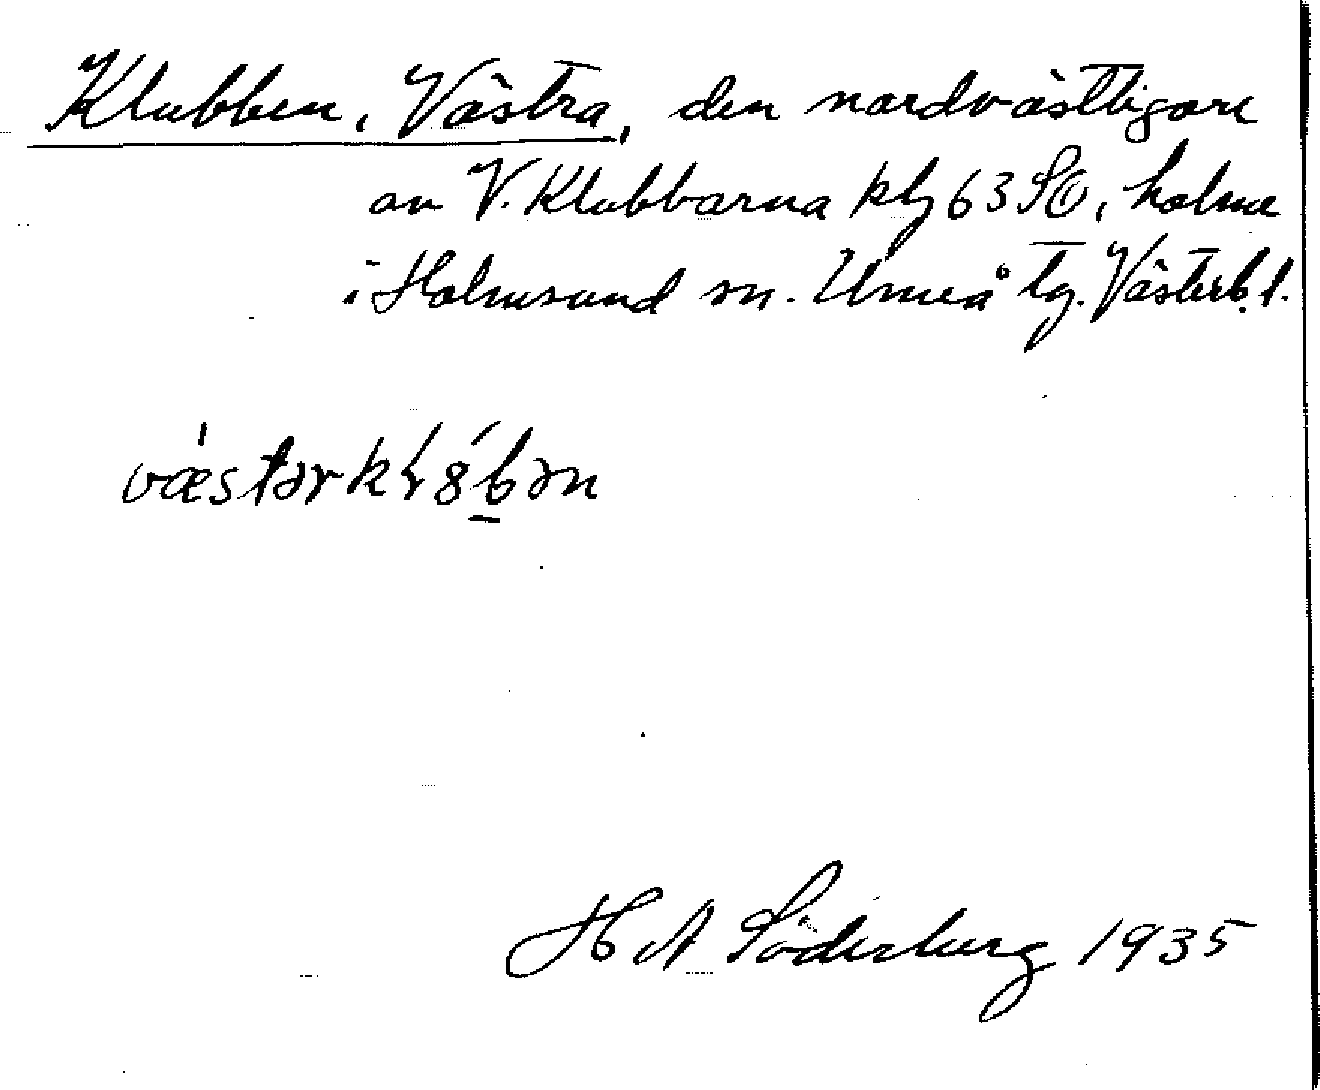 Klubben, Västra, den nordvästligare
av V. Klubbarna kbl 63 SO, holme
i Holmsund sn. Umeå tg. Västerb. l.
væstərkł8bən
H A Söderberg 1935